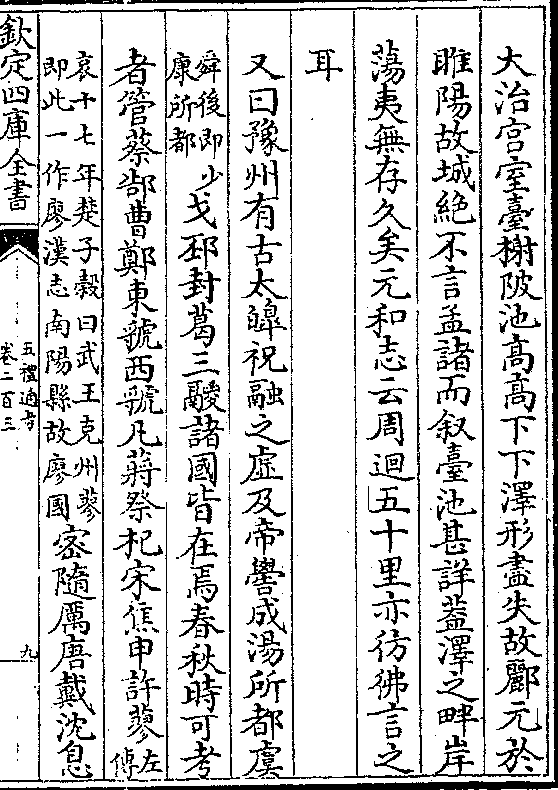 大治宫室臺榭陂池髙髙下下澤形盡失故酈元於
睢陽故城絶不言孟諸而叙臺池甚詳葢澤之畔岸
蕩夷無存久矣元和志云周迴五十里亦彷彿言之
耳
又曰豫州有古太皥祝融之虚及帝嚳成湯所都虞
舜後即少康所都戈邳封葛三鬷諸國皆在焉春秋時可考
者管蔡郜曹鄭東虢西虢凡蔣祭杞宋焦申許蓼左傳
哀十七年楚子榖曰武王克州蓼即此一作廖漢志南陽縣故廖國宻隨厲唐戴沈息
欽定四庫全書
五禮通考
卷二百三
九